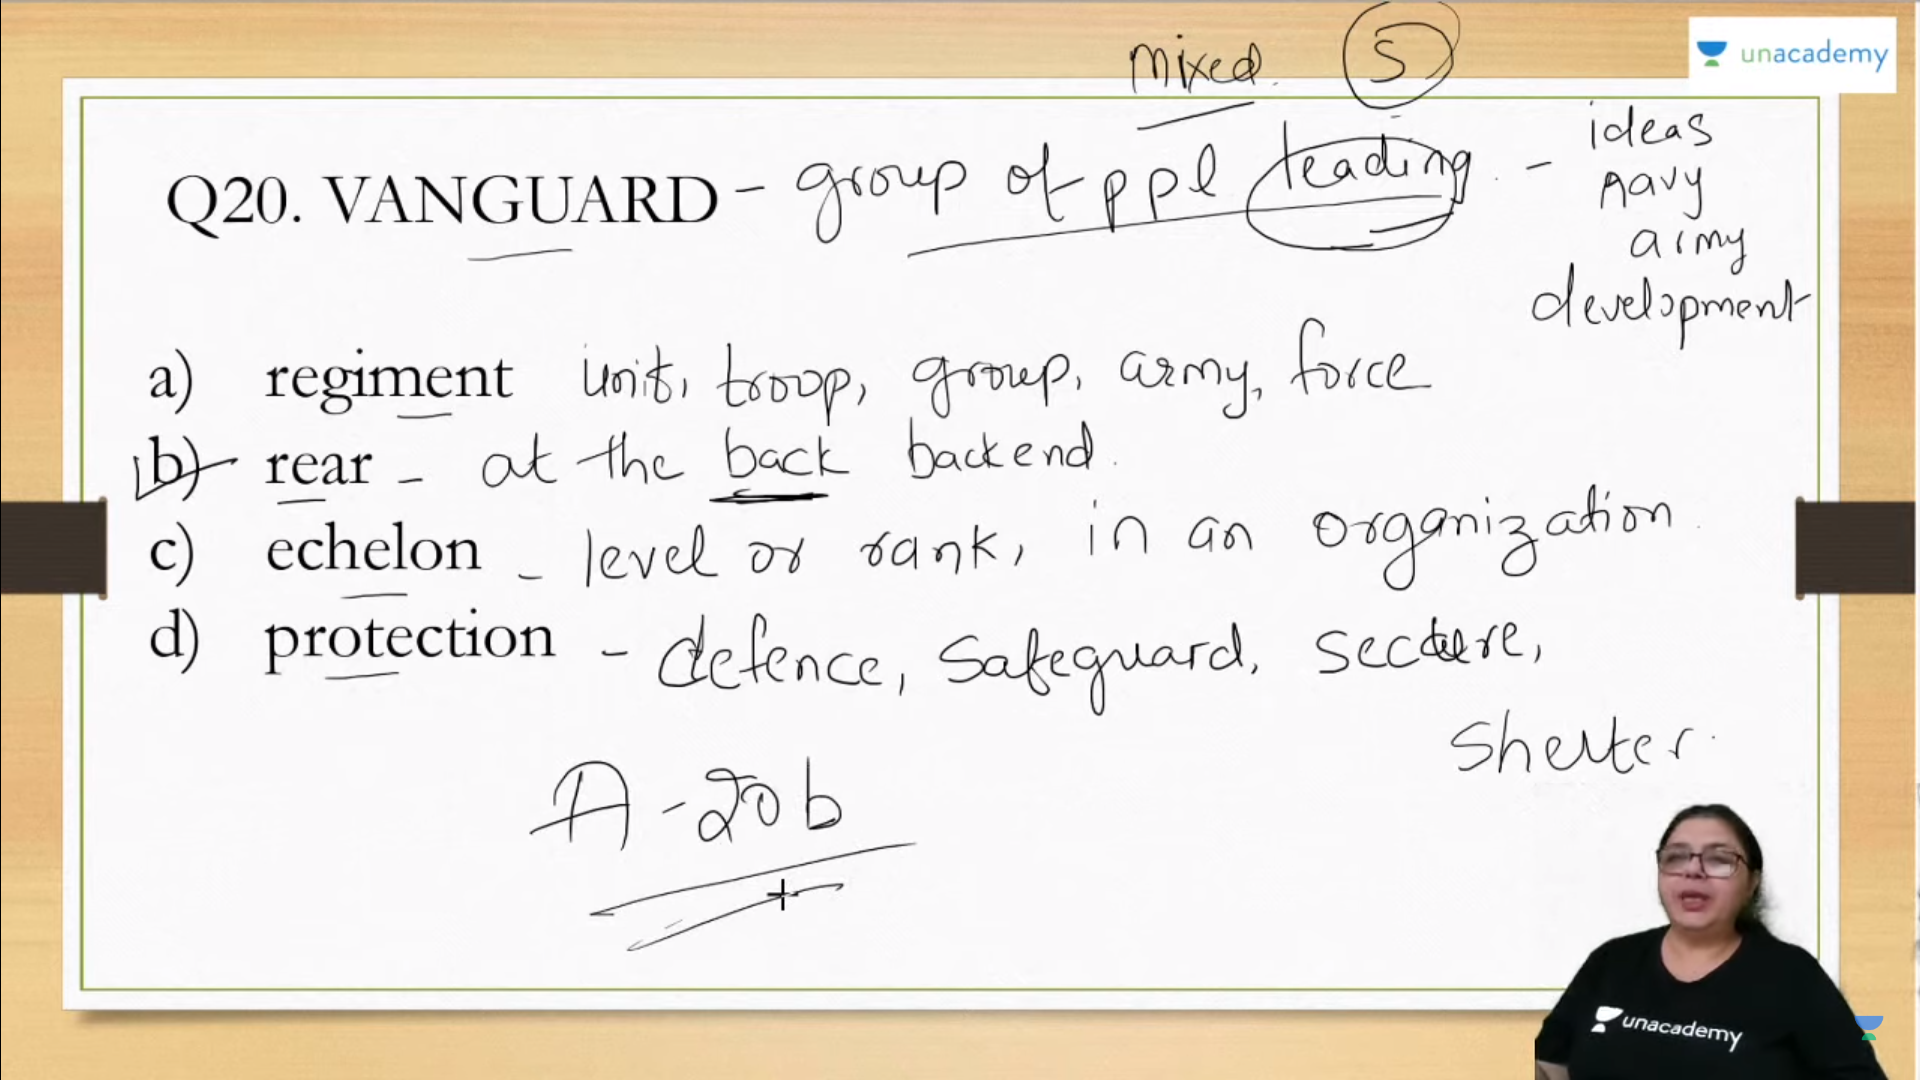 mixed. S
unacademy
Q20. VANGUARD - group of ppl leading. - ideas
navy
army
development
a) regiment unit, troop, group, army, force
b) rear - at the back backend.
c) echelon - level or rank, in an organization.
d) protection - defence, safeguard, secure,
shelter.
A - 20 b
unacademy